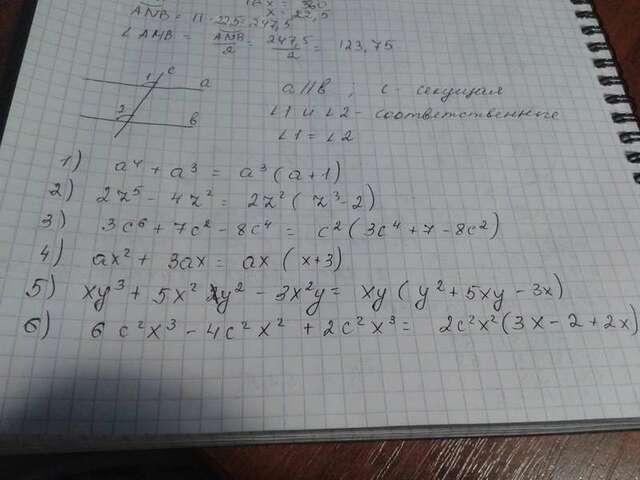 16x = 360
x = 22,5
ANB = 11 · 22,5 = 247,5
∠AMB = ANB/2 = 247,5/2 = 123,75
1 c a
2 b
a||b ; c - секущая
∠1 и ∠2 - соответственные
∠1 = ∠2
1) a⁴ + a³ = a³ (a+1)
2) 2z⁵ - 4z² = 2z² (z³-2)
3) 3c⁶ + 7c² - 8c⁴ = c² (3c⁴ + 7 - 8c²)
4) ax² + 3ax = ax (x+3)
5) xy³ + 5x²y² - 3x²y = xy (y² + 5xy - 3x)
6) 6c²x³ - 4c²x² + 2c²x³ = 2c²x² (3x - 2 + 2x)